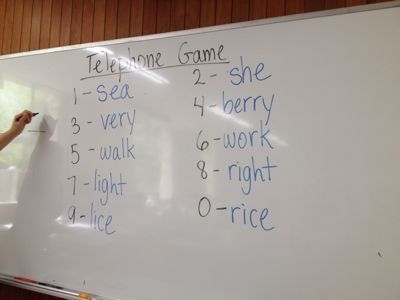 Telephone Game
1 - sea 2 - she
3 - very 4 - berry
5 - walk 6 - work
7 - light 8 - right
9 - lice 0 - rice